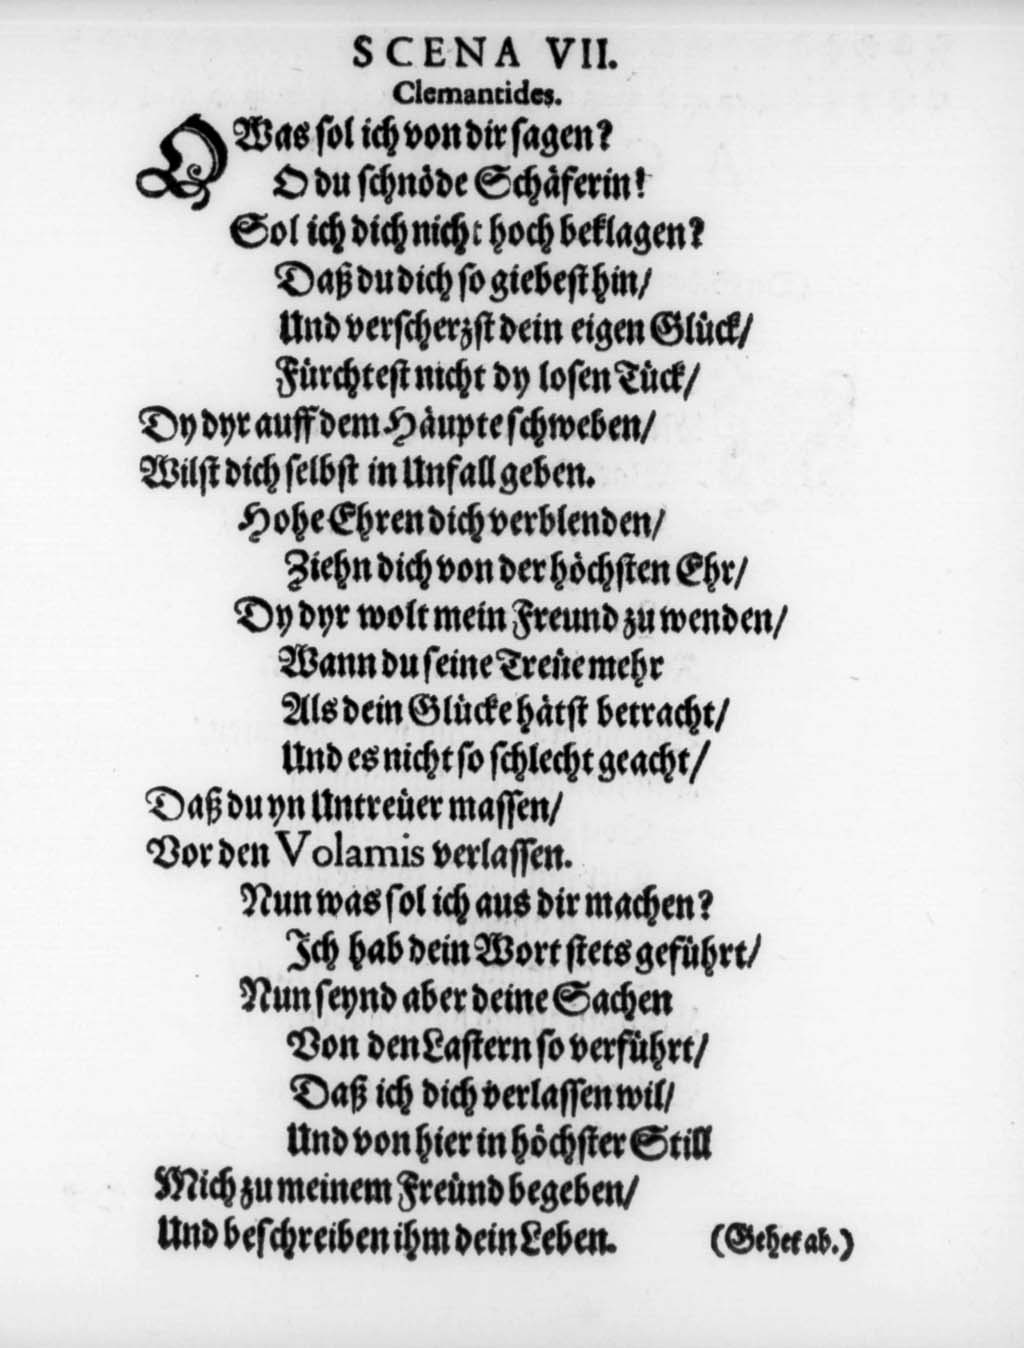 SCENA VII.
Clemantides.
O Was sol ich von dir sagen?
O du schnöde Schäferin!
Sol ich dich nicht hoch beklagen?
Daß du dich so giebest hin/
Und verscherzst dein eigen Glück/
Fürchtest nicht dy losen Tück/
Dy dyr auff dem Häupte schweben/
Wilst dich selbst in Unfall geben.
Hohe Ehren dich verblenden/
Ziehn dich von der höchsten Ehr/
Dy dyr wolt mein Freund zu wenden/
Wann du seine Treüe mehr
Als dein Glücke hätst betracht/
Und es nicht so schlecht geacht/
Daß du yn Untreüer massen/
Vor den Volamis verlassen.
Nun was sol ich aus dir machen?
Ich hab dein Wort stets geführt/
Nun seynd aber deine Sachen
Von den Lastern so verführt/
Daß ich dich verlassen wil/
Und von hier in höchster Still
Mich zu meinem Freünd begeben/
Und beschreiben ihm dein Leben. (Gehet ab.)